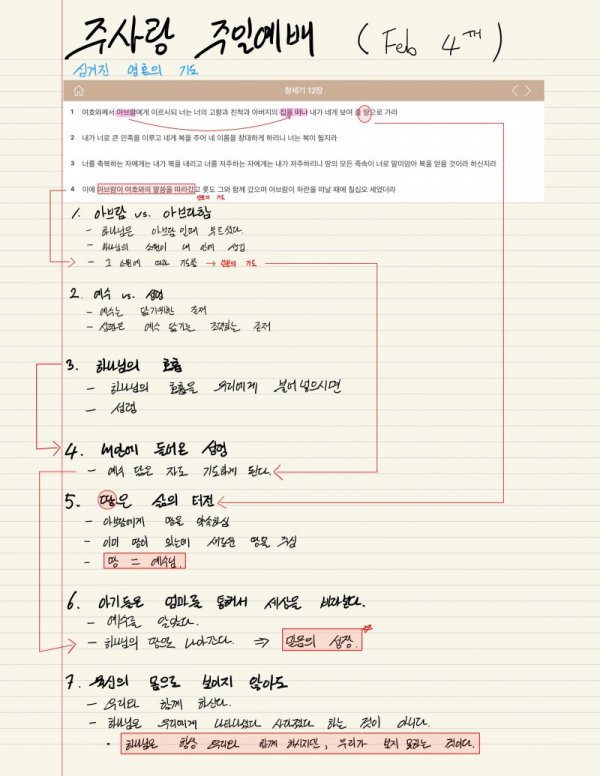 주사랑 주일예배 (Feb 4th)
섬겨진 영혼의 기도
창세기 12장
1 여호와께서 아브람에게 이르시되 너는 너의 고향과 친척과 아버지의 집을 떠나 내가 네게 보여 줄 땅으로 가라
2 내가 너로 큰 민족을 이루고 네게 복을 주어 네 이름을 창대하게 하리니 너는 복이 될지라
3 너를 축복하는 자에게는 내가 복을 내리고 너를 저주하는 자에게는 내가 저주하리니 땅의 모든 족속이 너로 말미암아 복을 얻을 것이라 하신지라
4 이에 아브람이 여호와의 말씀을 따라갔고 롯도 그와 함께 갔으며 아브람이 하란을 떠날 때에 칠십오 세였더라
기도
1. 아브람 vs. 아브라함
- 하나님은 아브람일때 부르셨다.
- 하나님의 소원이 내 안에 생김
- 그 소원에 따라 기도함 → 기도
2. 예수 vs. 성령
- 예수는 닮기위한 존재
- 성령은 예수 닮기는 존재
3. 하나님의 호흡
- 하나님의 호흡을 우리에게 불어넣으시면
- 성령
4. 내안에 들어온 성령
- 예수 닮은 자로 기도하게 된다.
5. 땅은 삶의 터전
- 아브람에게 땅을 약속하심
- 이미 땅이 있는데 새로운 땅을 주심
- 땅 = 예수님.
6. 아기들은 엄마를 통해서 세상을 바라본다.
- 예수를 알았다.
- 하나님의 땅으로 나아간다. ⇒ 믿음의 성장.
7. 육신의 몸으로 보이지 않아도
- 우리와 함께 하신다.
- 하나님은 우리에게 나타나셨다 사라졌다 하는 것이 아니다.
• 하나님은 항상 우리와 함께 하시지만, 우리가 보지 못하는 것이다.